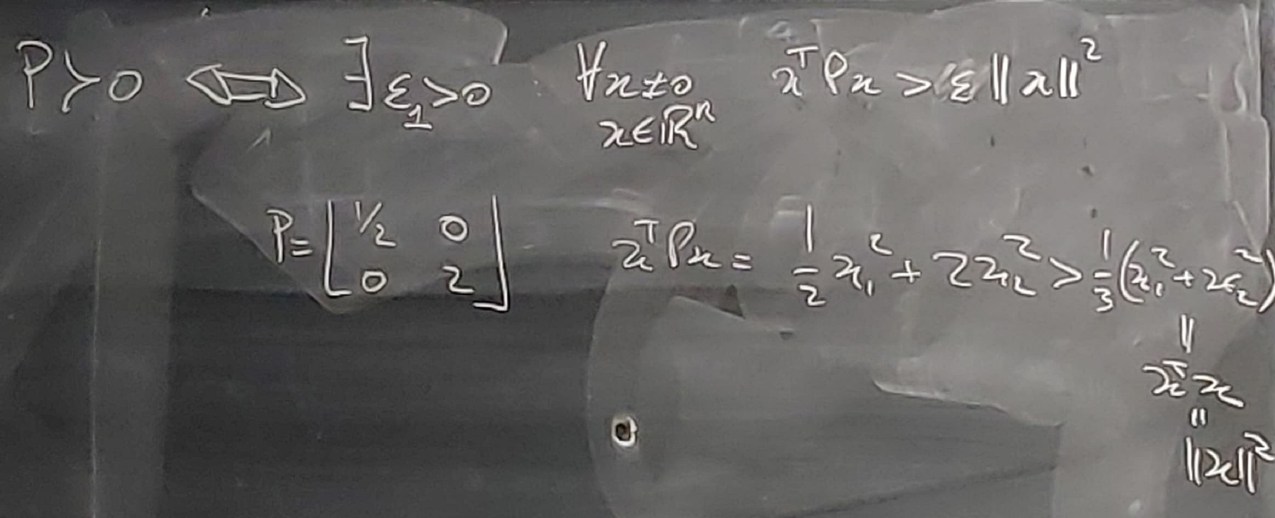 P≻0 ⟺ ∃ε₁>0 ∀x≠0 xᵀPx > ε‖x‖²
x∈ℝⁿ
P= [1/2 0; 0 2] xᵀPx = 1/2 x₁² + 2x₂² > 1/3 (x₁² + x₂²)
‖
xᵀx
‖
‖x‖²